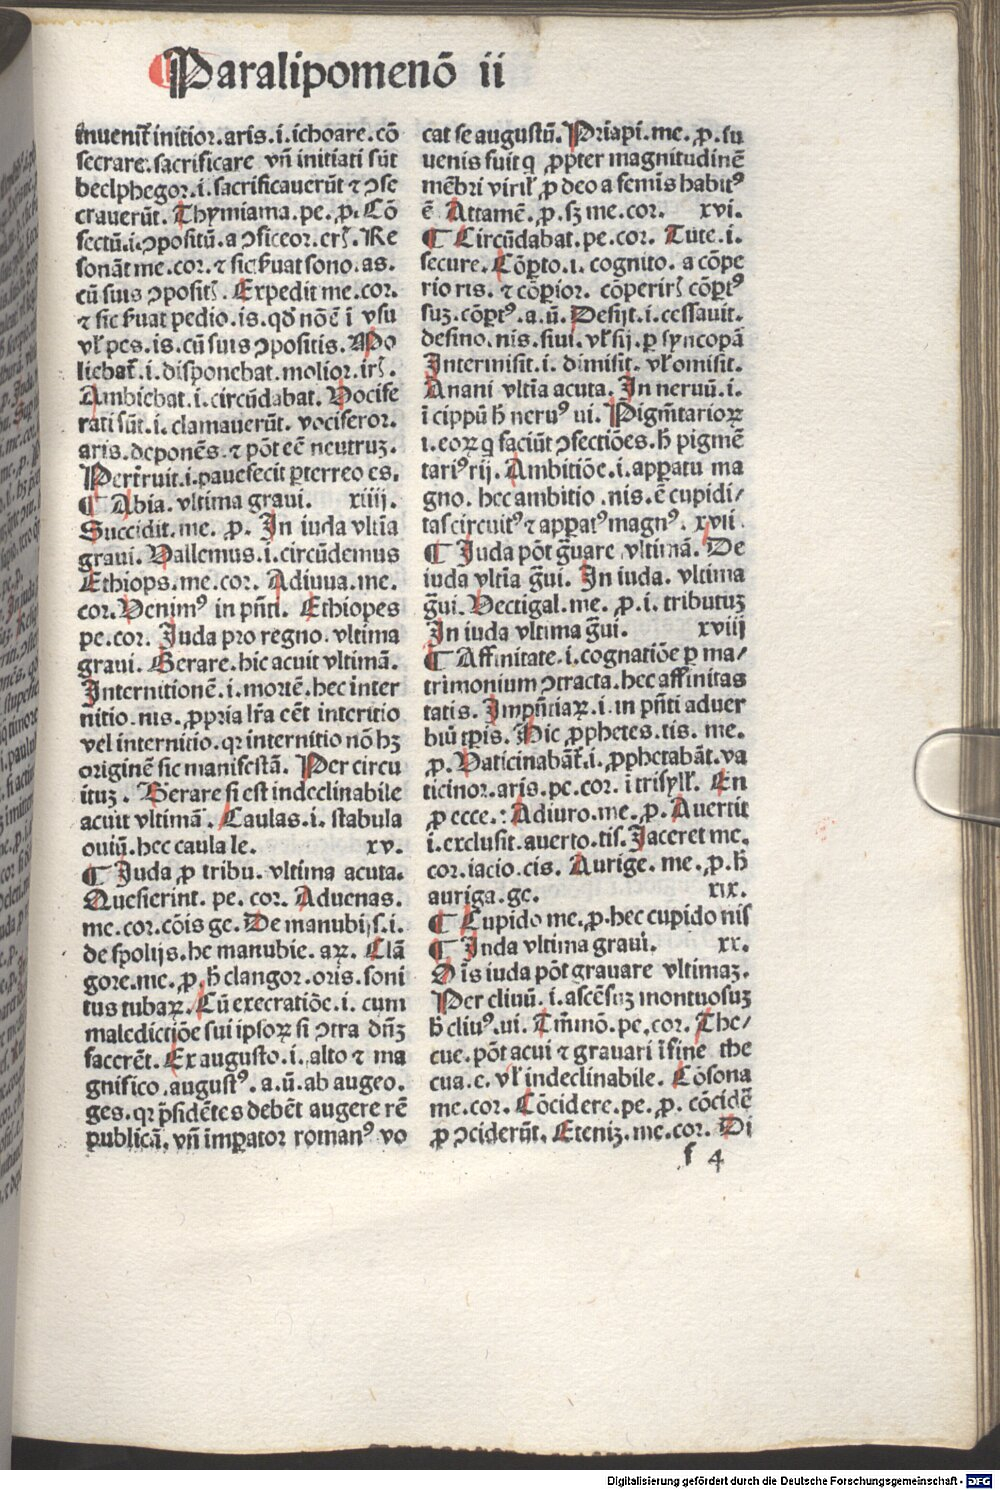 Paralipomenō ii
inuenit̄ initior.aris.i.ichoare.cō
secrare.sacrificare vn̄ initiati sūt
beelphegor.i.sacrificauerūt ⁊ ↄse
crauerūt. Thymiama.pe.ꝓ. Cō
fectū.i.ↄpositū.a ↄficeor.erꝭ. Re
sonāt me.cor.⁊ sic ẜuat sono.as.
cū suis ↄpositꝭ. Expedit me.cor.
⁊ sic ẜuat pedio.is.qđ nō ē ī vsu
vł pes.is.cū suis ↄpositis. Mo
liebat̄.i.disponebat.molior.irꝭ.
Ambiebat.i.circūdabat. Vocife
rati sūt.i.clamauerūt. vociferor.
aris.deponēs.⁊ pōt eē neutruꝫ.
Pert̄ruit.i.pauefecit ꝑterreo es.
¶ Abia. vltima graui. xiiii.
Succidit.me. ꝓ. In iuda vltīa
graui. Vallemus.i.circūdemus
Ethiops.me.cor. Adiuua.me.
cor. Venimꝰ in pn̄ti. Ethiopes
pe.cor. Juda pro regno. vltima
graui. Gerare.hic acuit vltimā.
Internitionē.i.mortē.hec inter
nitio.nis.ꝓpria lr̄a eēt interitio
vel internitio.qꝛ internitio nō hꝫ
originē sic manifestā. Per circu
ituꝫ. Gerare si est indeclinabile
acuit vltimā. Caulas.i. stabula
ouiū.hec caula le. xv.
¶ Juda ꝓ tribu. vltima acuta.
Quesierint. pe. cor. Aduenas.
me.cor.cōis ge. De manubijs.i.
de spolijs.he manubie.aꝝ. Clā
gore.me.ꝓ.ħ clangor.oris.soni
tus tubaꝝ. Cū execratiōe.i. cum
maledictiōe sui ipsoꝝ si ↄtra dn̄ꝫ
facerēt. Ex augusto.i.alto ⁊ ma
gnifico.augustꝰ.a.ū.ab augeo.
ges.qꝛ p̄sidētes debēt augere rē
publicā. vn̄ imꝑator romanꝰ vo
cat se augustū. Priapi.me.ꝓ.iu
uenis fuit q ꝓpter magnitudinē
mēbri viriƚ ꝓ deo a femīs habitꝰ
ē. Attamē.ꝓ.sꝫ me.cor. xvi.
¶ Circūdabat.pe.cor. Tute.i.
secure. Cōꝑto.i. cognito. a cōpe
rio ris. ⁊ cōpior. cōperirꝭ cōꝑtꝰ
suꝫ.cōꝑtꝰ.a.ū. Desijt.i.cessauit.
desino.nis.siui.vƚ sij.ꝑ syncopā
Intermisit.i. dimisit. vƚ omisit.
Anani vltīa acuta. In neruū.i.
ī cippū ħ neruꝰ ui. Pigm̄tarioꝝ
i.eoꝝ q faciūt ↄfectiōes.ħ pigmē
tariꝰ rij. Ambitiōe.i.apꝑatu ma
gno. hec ambitio.nis.ē cupidi/
tas circuitꝰ ⁊ apꝑatꝰ magnꝰ. xvii
¶ Juda pōt ḡuare vltimā. De
iuda vltīa ḡui. In iuda. vltima
ḡui. Vectigal.me. ꝓ.i. tributuꝫ
In iuda vltima ḡui. xviij
¶ Affinitate.i.cognatiōe ꝑ ma/
trimonium ↄtracta.hec affinitas
tatis. Impn̄tiaꝝ.i.in pn̄ti aduer
biū tꝑis. Hic ꝓphetes.tis. me.
ꝓ. Vaticinabāt̄.i.ꝓphetabāt.va
ticinor.aris.pe.cor.ī trisyƚƚ. En
ꝓ ecce.: Adiuro.me.ꝓ. Auertit
i.exclusit.auerto.tis. Jaceret me.
cor.iacio.cis. Aurige.me.ꝓ.ħ
auriga.ge. xix.
¶ Cupido me.ꝓ.hec cupido nis
¶ Inda vltima graui. xx.
Oīs iuda pōt grauare vltimaꝫ.
Per cliuū.i.ascēsuꝫ montuosuꝫ
ħ cliuꝰ.ui. Tm̄mō.pe.cor. The/
cue.pōt acui ⁊ grauari ī fine the
cua.e. vƚ indeclinabile. Cōsona
me.cor. Cōcidere.pe.ꝓ. cōcidē
ꝓ ↄciderūt. Eteniꝫ.me.cor. Di
f 4
Digitalisierung gefördert durch die Deutsche Forschungsgemeinschaft - DFG